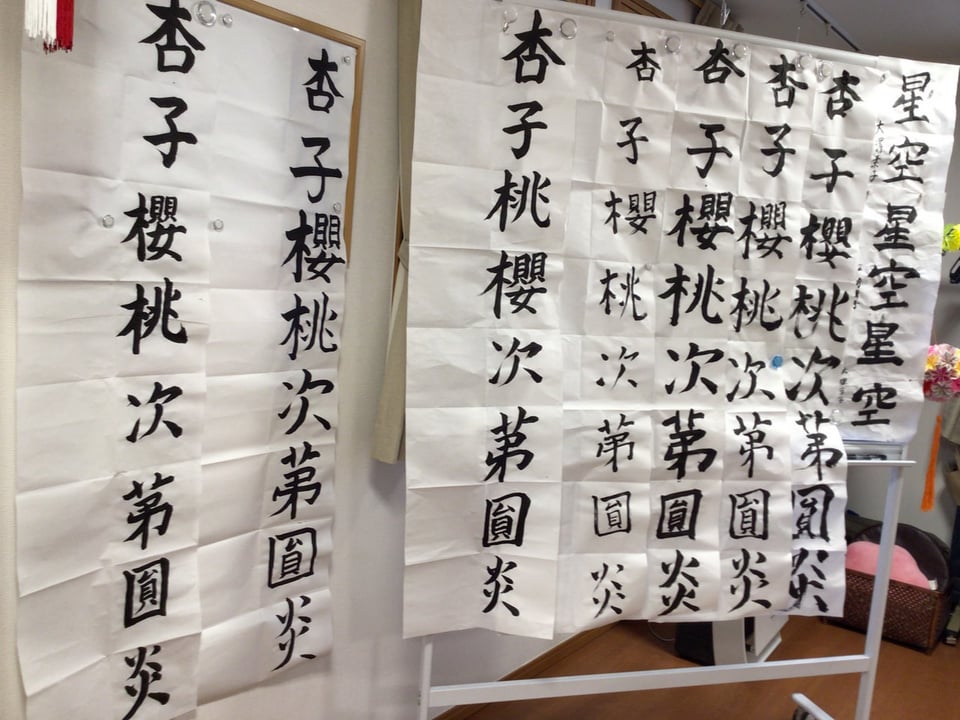 星空星空星空
杏子櫻桃次第圓炎
杏子櫻桃次第圓炎
杏子櫻桃次第圓炎
杏子櫻桃次第圓炎
杏子桃櫻次第圓炎
杏子櫻桃次第圓炎
杏子櫻桃次第圓炎